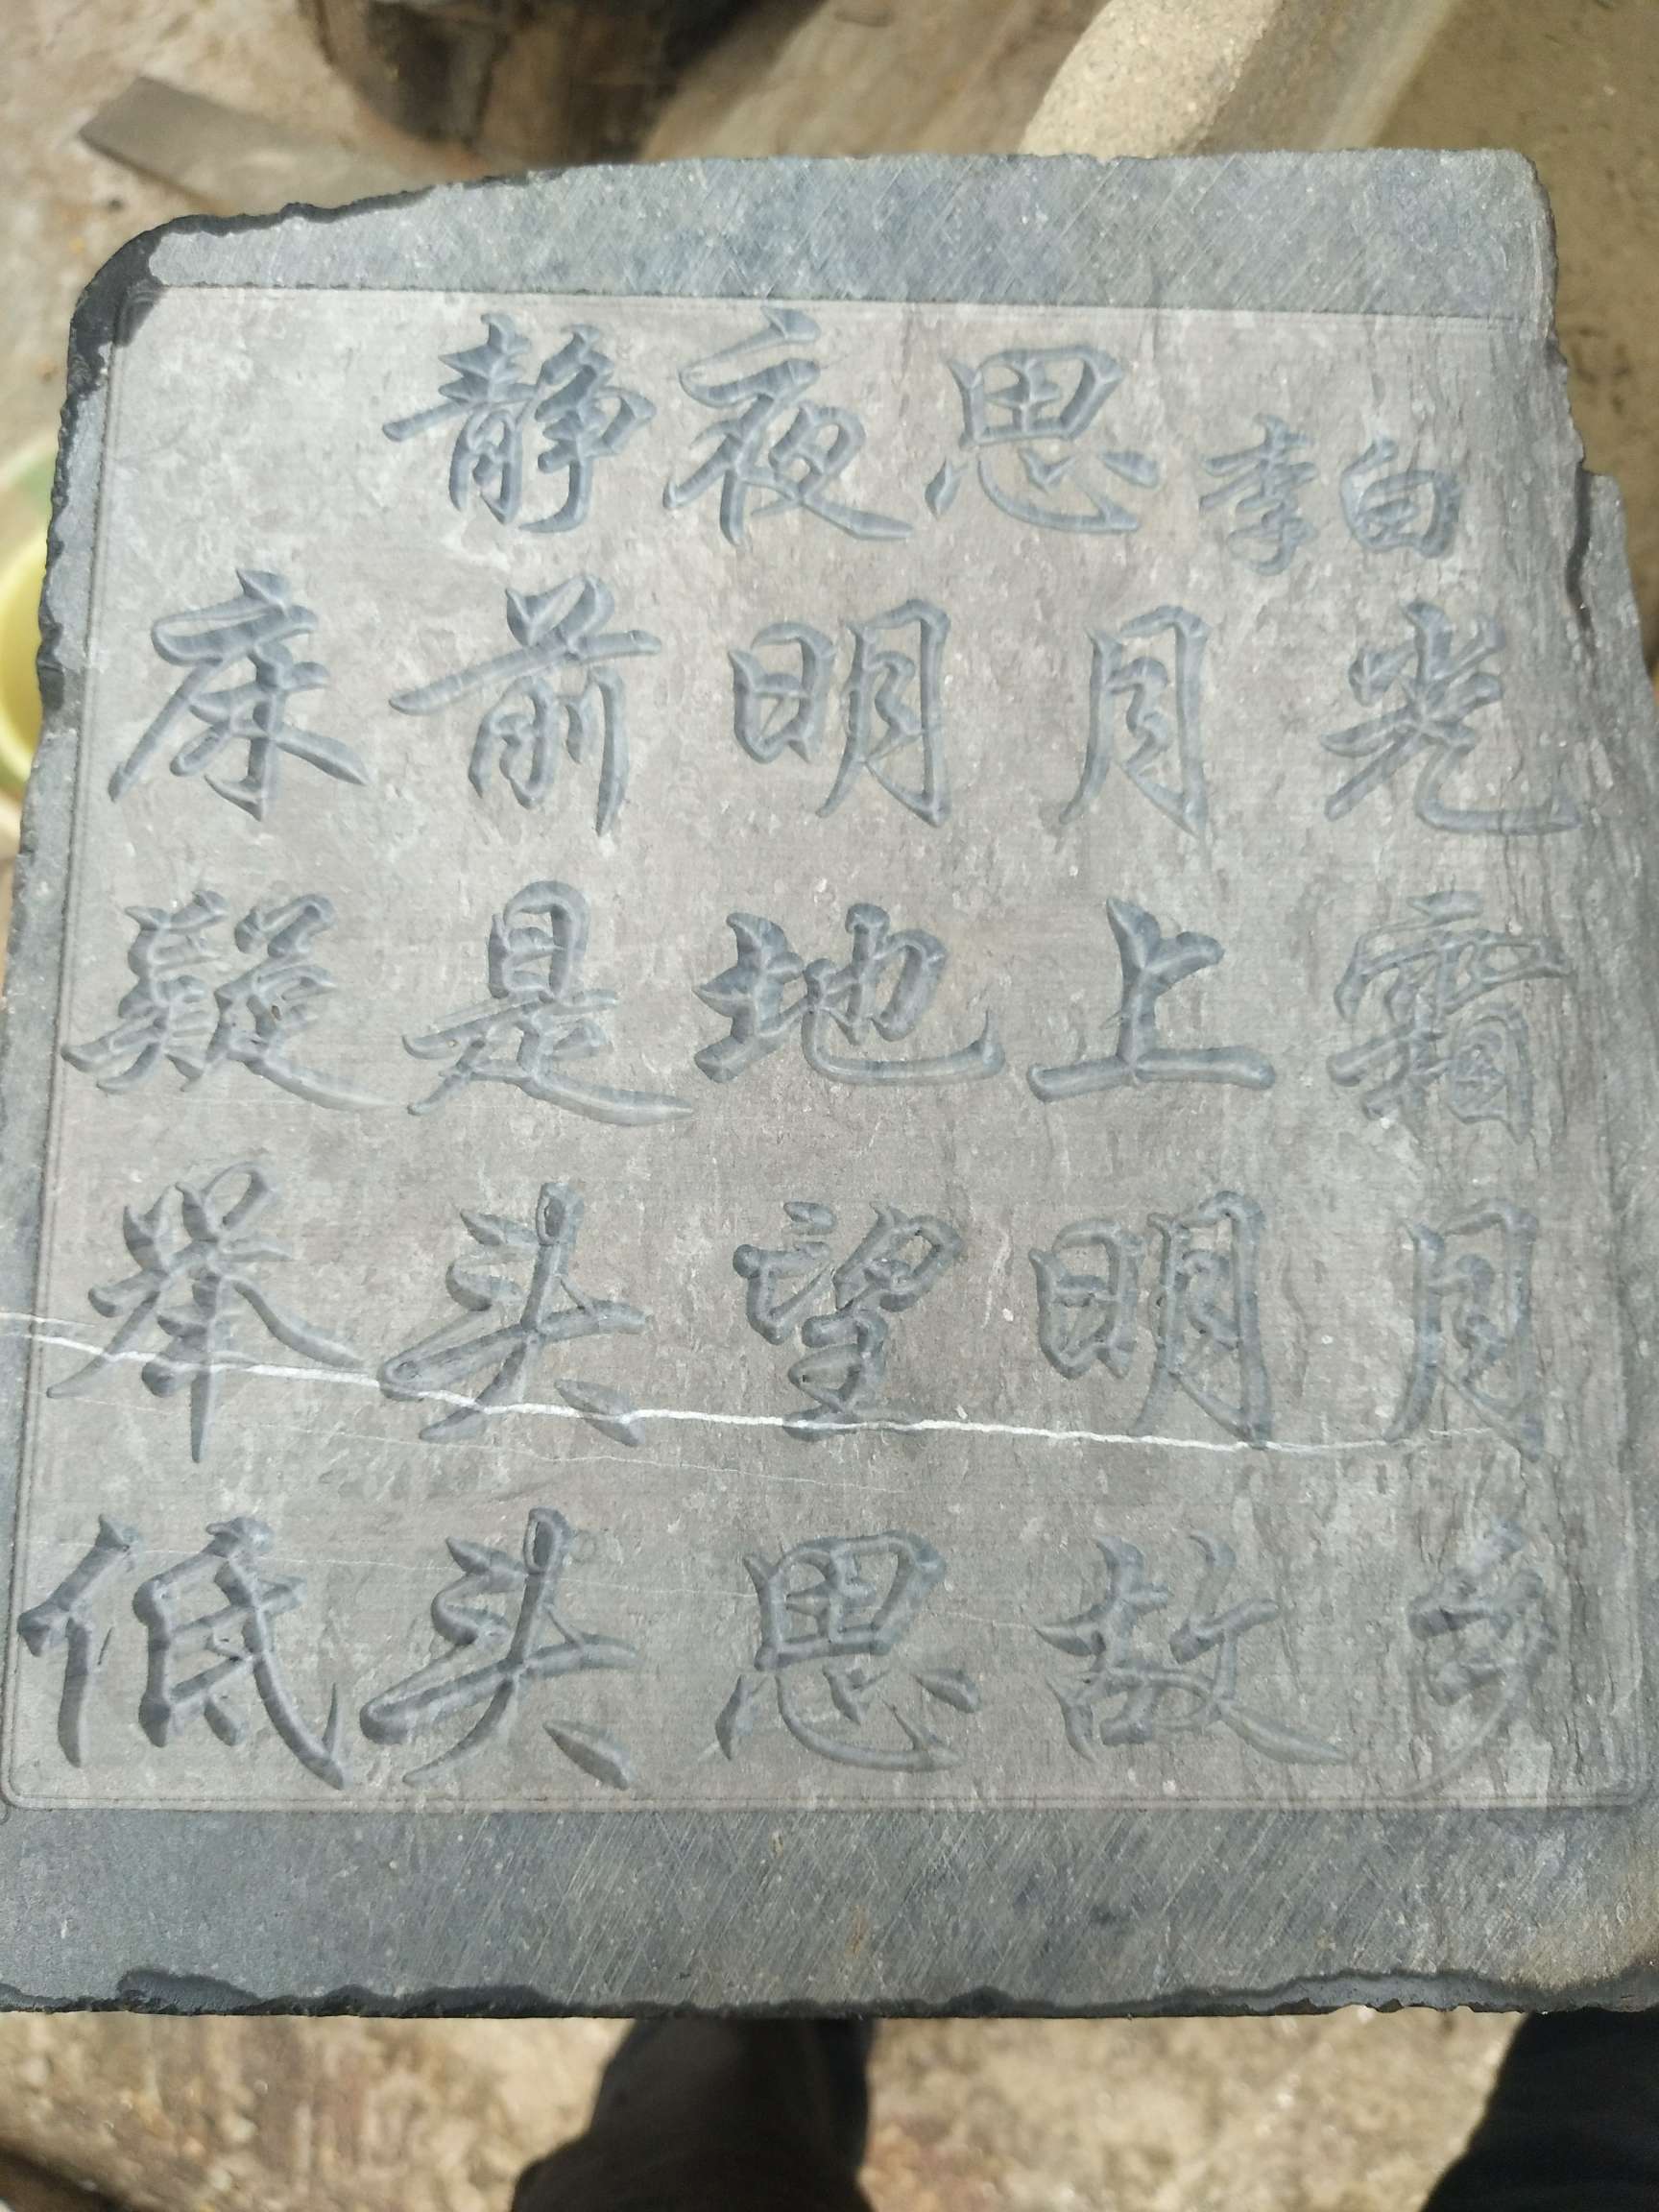 静夜思 李白
床前明月光
疑是地上霜
举头望明月
低头思故乡